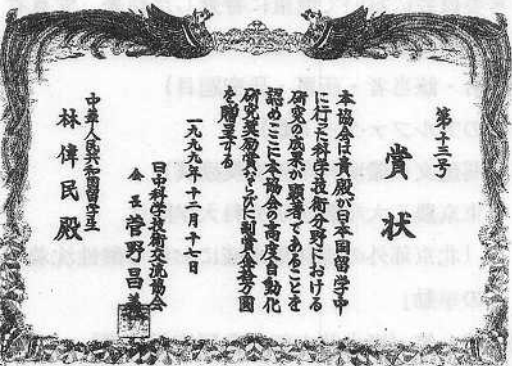 第十三号
賞状
本協会は貴殿が日本国留学中
に行った科学技術分野における
研究の成果が顕著であることを
認めここに本協会の高度自動化
研究奨励賞ならびに副賞金拾万圓
を贈呈する
一九九九年十二月十七日
日中科学技術交流協会
会長 菅野昌
中華人民共和国留学生
林偉民殿